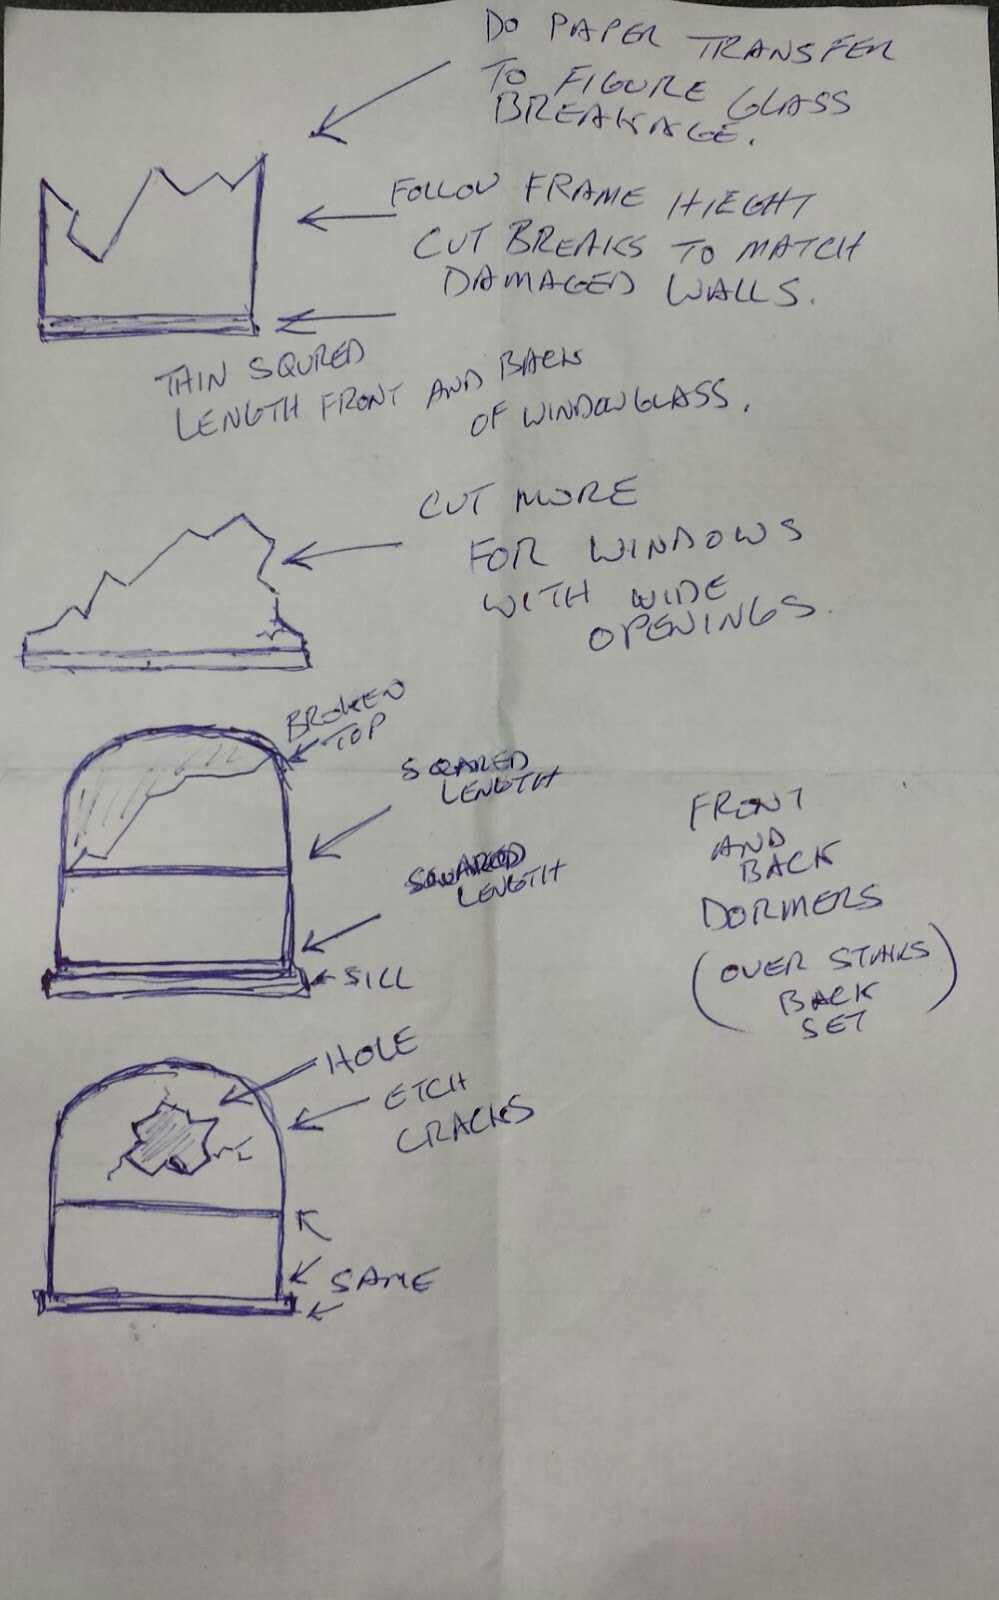 DO PAPER TRANSFER
TO FIGURE GLASS
BREAKAGE.
FOLLOW FRAME HIEGHT
CUT BREAKS TO MATCH
DAMAGED WALLS.
THIN SQURED
LENGTH FRONT AND BACK
OF WINDOWGLASS.
CUT MORE
FOR WINDOWS
WITH WIDE
OPENINGS.
BROKEN
TOP
SQARED
LENGTH
SQUARED
LENGTH
SILL
FRONT
AND
BACK
DORMERS
(OVER STAIRS
BACK
SET)
HOLE
ETCH
CRACKS
SAME